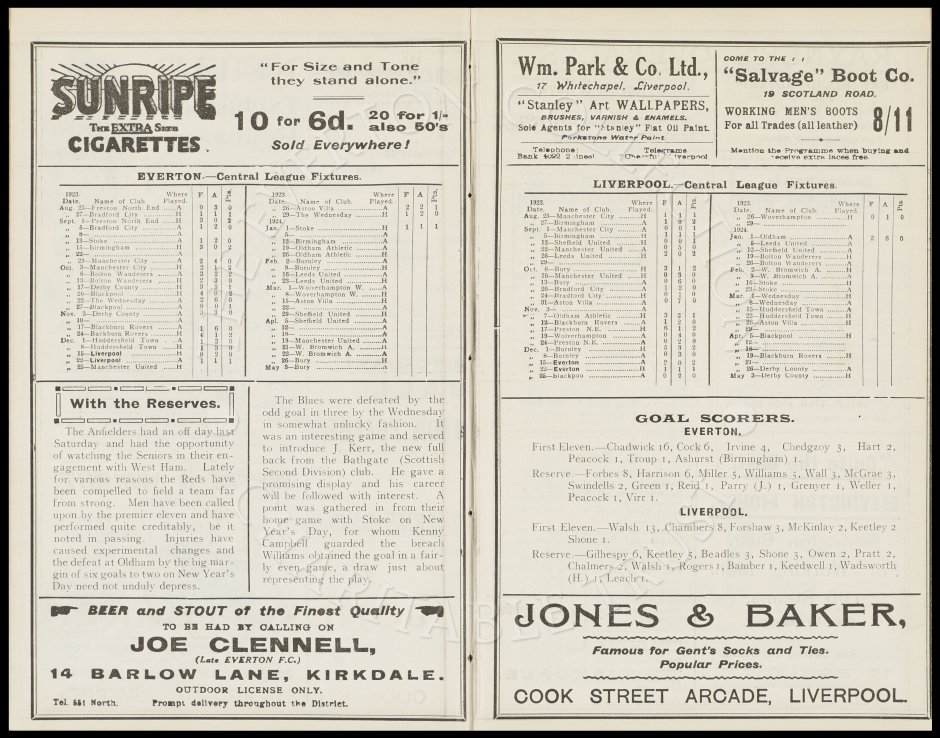 SUNRIPE
THE EXTRA SIZE
CIGARETTES.
"For Size and Tone
they stand alone."
10 for 6d. 20 for 1/-
also 50's
Sold Everywhere!
EVERTON.—Central League Fixtures.
1923. Where F A Pts.
Date. Name of Club. Played.
Aug. 25—Preston North End ....A 0 3 0
„ 27—Bradford City ............H 1 1 1
Sept. 1—Preston North End ....H
„ 5—Bradford City ............A 1 2 0
„ 8—
„ 13—Stoke ............A 1 2 0
„ 15—Birmingham ............A
„ 22—
„ 29—Manchester City ............A 2 4 0
Oct. 3—Manchester City ............H 2 1
„ 6—Bolton Wanderers ............H
„ 13—Bolton Wanderers ............A
„ 17—Derby County ............H
„ 20—Blackpool ............H
„ 22—The Wednesday ............A 2 6 0
„ 27—Blackpool ............A 0 0 1
Nov. 3—Derby County ............A
„ 10—
„ 17—Blackburn Rovers ............A 1 6 0
„ 24—Blackburn Rovers ............H
Dec. 1—Huddersfield Town ............A
„ 8—Huddersfield Town ............H
„ 15—Liverpool ............H 0 2 0
„ 22—Liverpool ............A 1 1 1
„ 25—Manchester United ............H
1923. Where F A Pts.
Date. Name of Club. Played.
„ 26—Aston Villa ............A 2 2 1
„ 29—The Wednesday ............H 1 2 0
1924.
Jan. 1—Stoke ............H 1 1 1
„ 5—
„ 12—Birmingham ............H
„ 19—Oldham Athletic ............A
„ 26—Oldham Athletic ............H
Feb. 2—Burnley ............A
„ 9—Burnley ............H
„ 16—Leeds United ............A
„ 23—Leeds United ............H
Mar. 1—Wolverhampton W. ....A
„ 8—Woverhampton W. ....H
„ 15—Aston Villa ............H
„ 22—
„ 29—Sheffield United ............H
Apl. 5—Sheffield United ............A
„ 12—
„ 18—
„ 19—Manchester United ............A
„ 21—W. Bromwich A. ............H
„ 22—W. Bromwich A. ............A
„ 26—Bury ............H
May 3—Bury ............A
With the Reserves.
The Anfielders had an off day last
Saturday and had the opportunity
of watching the Seniors in their en-
gagement with West Ham. Lately
for various reasons the Reds have
been compelled to field a team far
from strong. Men have been called
upon by the premier eleven and have
performed quite creditably, be it
noted in passing. Injuries have
caused experimental changes and
the defeat at Oldham by the big mar-
gin of six goals to two on New Year's
Day need not unduly depress.
The Blues were defeated by the
odd goal in three by the Wednesday
in somewhat unlucky fashion. It
was an interesting game and served
to introduce J. Kerr, the new full
back from the Bathgate (Scottish
Second Division) club. He gave a
promising display and his career
will be followed with interest. A
point was gathered in from their
home game with Stoke on New
Year's Day, for whom Kenny
Campbell guarded the breach
Williams obtained the goal in a fair-
ly even game, a draw just about
representing the play.
BEER and STOUT of the Finest Quality
TO BE HAD BY CALLING ON
JOE CLENNELL,
(Late EVERTON F.C.)
14 BARLOW LANE, KIRKDALE.
OUTDOOR LICENSE ONLY.
Tel. 551 North. Prompt delivery throughout the District.
Wm. Park & Co. Ltd.,
17 Whitechapel, Liverpool.
"Stanley" Art WALLPAPERS,
BRUSHES, VARNISH & ENAMELS.
Sole Agents for "Stanley" Flat Oil Paint.
Parkstone Water Paint
Telephone: Telegrams
Bank 4092 2 lines) "Cheerful" Liverpool
COME TO THE : :
"Salvage" Boot Co.
19 SCOTLAND ROAD.
WORKING MEN'S BOOTS
For all Trades (all leather) 8/11
Mention the Programme when buying and
receive extra laces free.
LIVERPOOL.—Central League Fixtures.
1923. Where F A Pts.
Date. Name of Club. Played.
Aug. 25—Manchester City ............H 1 1 1
„ 27—Birmingham ............H
Sept. 1—Manchester City ............A 0 0 1
„ 5—Birmingham ............A 1 1 1
„ 12—Sheffield United ............H 0 0 1
„ 22—Manchester United ............A 0 5 0
„ 26—Leeds United ............H 2 0 2
„ 29—
Oct. 6—Bury ............H 3 1 2
„ 10—Manchester United ............H 0 3 0
„ 13—Bury ............A 0 6 0
„ 20—Bradford City ............A 1 2 0
„ 24—Bradford City ............H 0 1 0
„ 31—Aston Villa ............A 0 7 0
Nov. 3—
„ 17—Oldham Athletic ............H 3 3 1
„ 12—Blackburn Rovers ............A 1 2 0
„ 17—Preston N.E. ............H 6 1 2
„ 19—Wolverhampton ............A 0 4 0
„ 24—Preston N.E. ............A 0 2 0
Dec. 1—Burnley ............H 5 3 2
„ 8—Burnley ............A 0 3 0
„ 15—Everton ............A 2 0 2
„ 22—Everton ............H 1 1 1
„ 25—Blackpool ............A
1923. Where F A Pts.
Date. Name of Club. Played.
Aug.
„ 26—Wovernampton ............H 0 1 0
„ 29—
1924.
Jan. 1—Oldham ............A 2 6 0
„ 5—Leeds United ............A
„ 12—Sheffield United ............A
„ 19—Bolton Wanderers ............H
„ 26—Bolton Wanderers ............A
Feb. 2—W. Bromwich A. ............A
„ 9—W. Bromwich A. ............H
„ 16—Stoke ............A
„ 23—Stoke ............H
Mar. 1—Wednesday ............H
„ 8—Wednesday ............A
„ 15—Huddersfield Town ............A
„ 22—Huddersfield Town ............H
„ 26—Aston Villa ............H
„ 29—
Apr. 5—Blackpool ............H
„ 12—
„ 18—
„ 19—Blackburn Rovers ............H
„ 21—
„ 26—Derby County ............A
May 3—Derby County ............H
GOAL SCORERS.
EVERTON.
First Eleven.—Chadwick 16, Cock 6, Irvine 4, Chedgzoy 3, Hart 2,
Peacock 1, Troup 1, Ashurst (Birmingham) 1.
Reserve.—Forbes 8, Harrison 6, Miller 5, Williams 5, Wall 3, McGrae 3,
Swindells 2, Green 1, Reid 1, Parry (J.) 1, Grenyer 1, Weller 1,
Peacock 1, Virr 1.
LIVERPOOL.
First Eleven.—Walsh 13, Chambers 8, Forshaw 3, McKinlay 2, Keetley 2
Shone 1.
Reserve.—Gilhespy 6, Keetley 5, Beadles 3, Shone 3, Owen 2, Pratt 2,
Chalmers 2, Walsh 1, Rogers 1, Bamber 1, Keedwell 1, Wadsworth
(H.) 1, Leach 1.
JONES & BAKER,
Famous for Gent's Socks and Ties.
Popular Prices.
COOK STREET ARCADE, LIVERPOOL.